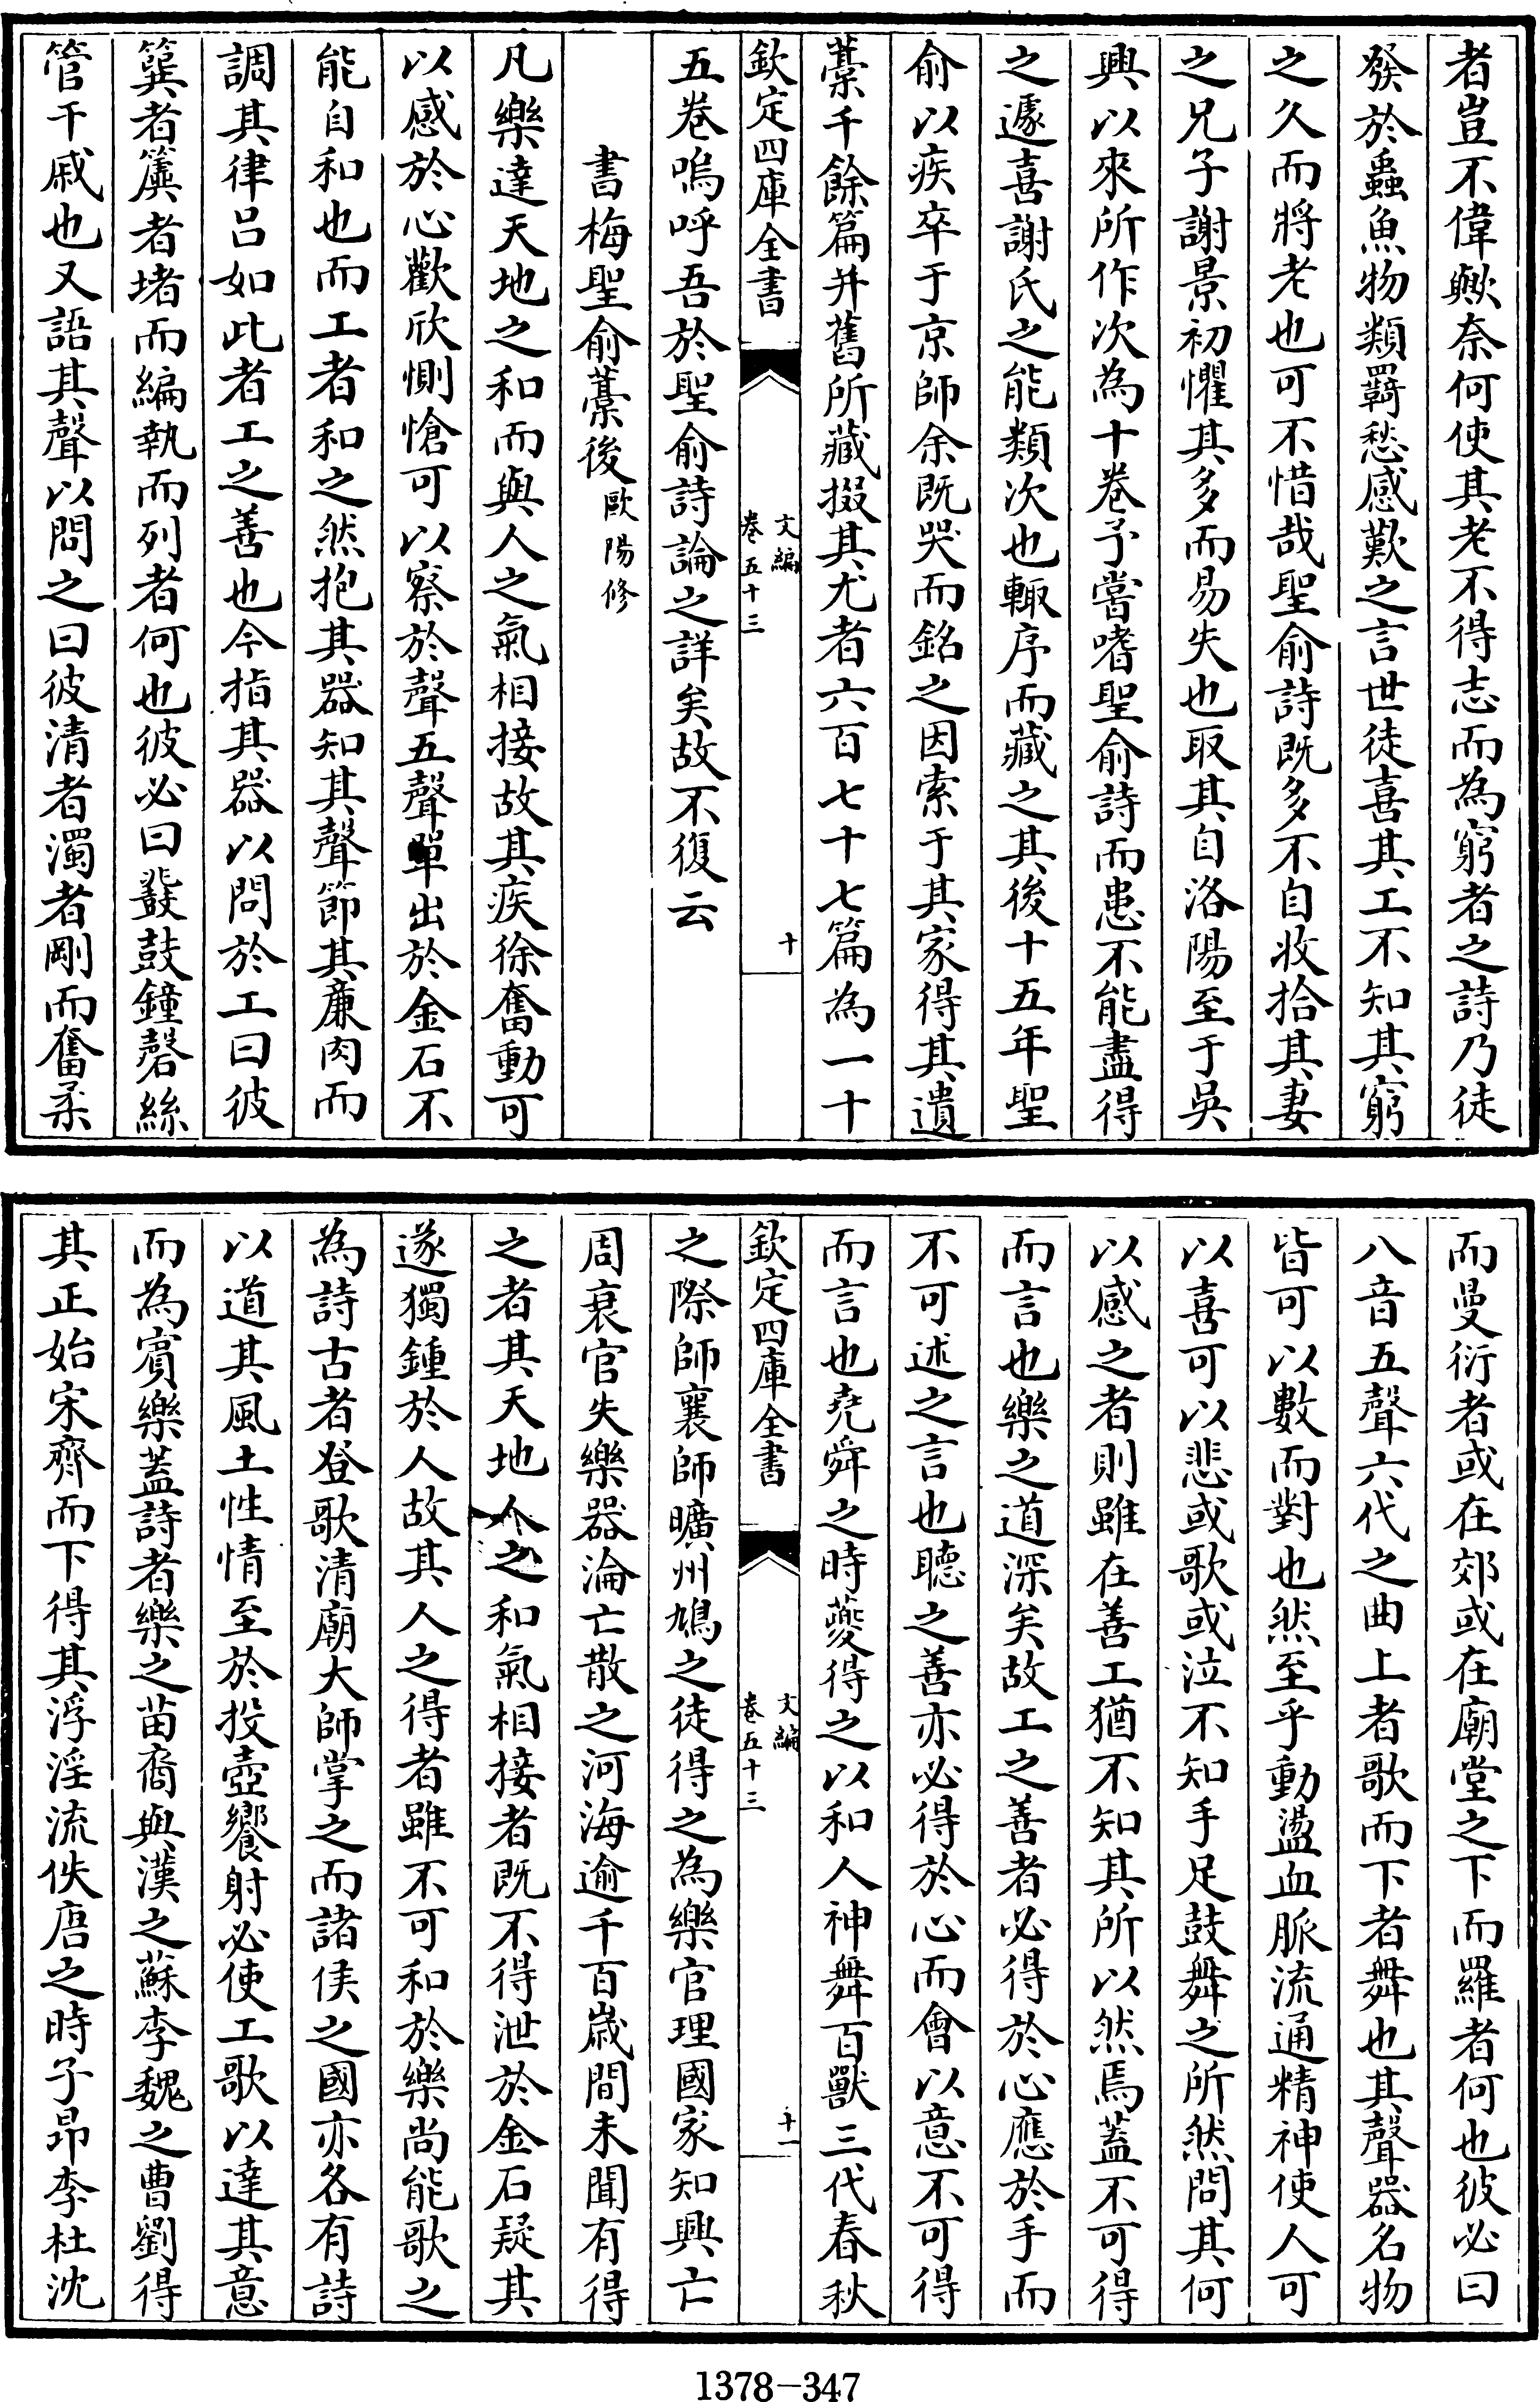 者豈不偉歟奈何使其老不得志而為窮者之詩乃徒
發於蟲魚物類羇愁感歎之言世徒喜其工不知其窮
之久而將老也可不惜哉聖俞詩既多不自收拾其妻
之兄子謝景初懼其多而易失也取其自洛陽至于吳
興以來所作次為十卷予嘗嗜聖俞詩而患不能盡得
之遽喜謝氏之能類次也輙序而藏之其後十五年聖
俞以疾卒于京師余既哭而銘之因索于其家得其遺
藁千餘篇并舊所藏掇其尤者六百七十七篇為一十
欽定四庫全書
文編
卷五十三
十
五卷嗚呼吾於聖俞詩論之詳矣故不復云
書梅聖俞藁後歐陽修
凡樂達天地之和而與人之氣相接故其疾徐奮動可
以感於心歡欣惻愴可以察於聲五聲單出於金石不
能自和也而工者和之然抱其器知其聲節其廉肉而
調其律吕如此者工之善也今指其器以問於工曰彼
簨者簴者堵而編執而列者何也彼必曰鼗鼓鐘磬絲
管干戚也又語其聲以問之曰彼清者濁者剛而奮柔
而曼衍者或在郊或在廟堂之下而羅者何也彼必曰
八音五聲六代之曲上者歌而下者舞也其聲器名物
皆可以數而對也然至乎動盪血脈流通精神使人可
以喜可以悲或歌或泣不知手足鼓舞之所然問其何
以感之者則雖在善工猶不知其所以然焉蓋不可得
而言也樂之道深矣故工之善者必得於心應於手而
不可述之言也聽之善亦必得於心而會以意不可得
而言也堯舜之時夔得之以和人神舞百獸三代春秋
欽定四庫全書
文編
卷五十三
十一
之際師襄師曠州鳩之徒得之為樂官理國家知興亡
周衰官失樂器淪亡散之河海逾千百歲間未聞有得
之者其天地人之和氣相接者既不得泄於金石疑其
遂獨鍾於人故其人之得者雖不可和於樂尚能歌之
為詩古者登歌清廟大師掌之而諸侯之國亦各有詩
以道其風土性情至於投壺饗射必使工歌以達其意
而為賓樂蓋詩者樂之苗裔與漢之蘇李魏之曹劉得
其正始宋齊而下得其浮淫流佚唐之時子昂李杜沈
1378-347